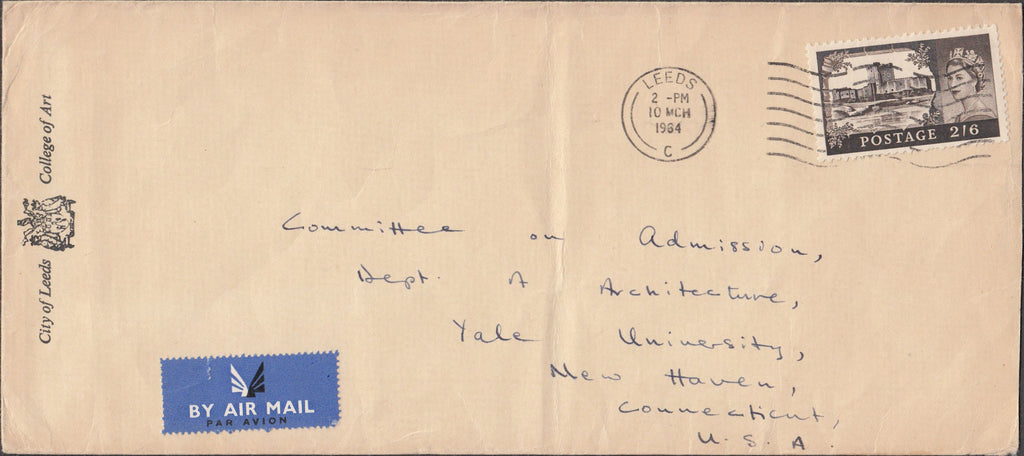 City of Leeds College of Art
LEEDS
2 -PM
10 MCH
1964
C
POSTAGE 2/6
Committee on Admission,
Dept. of Architecture,
Yale University,
New Haven,
Connecticut,
U.S.A.
BY AIR MAIL
PAR AVION